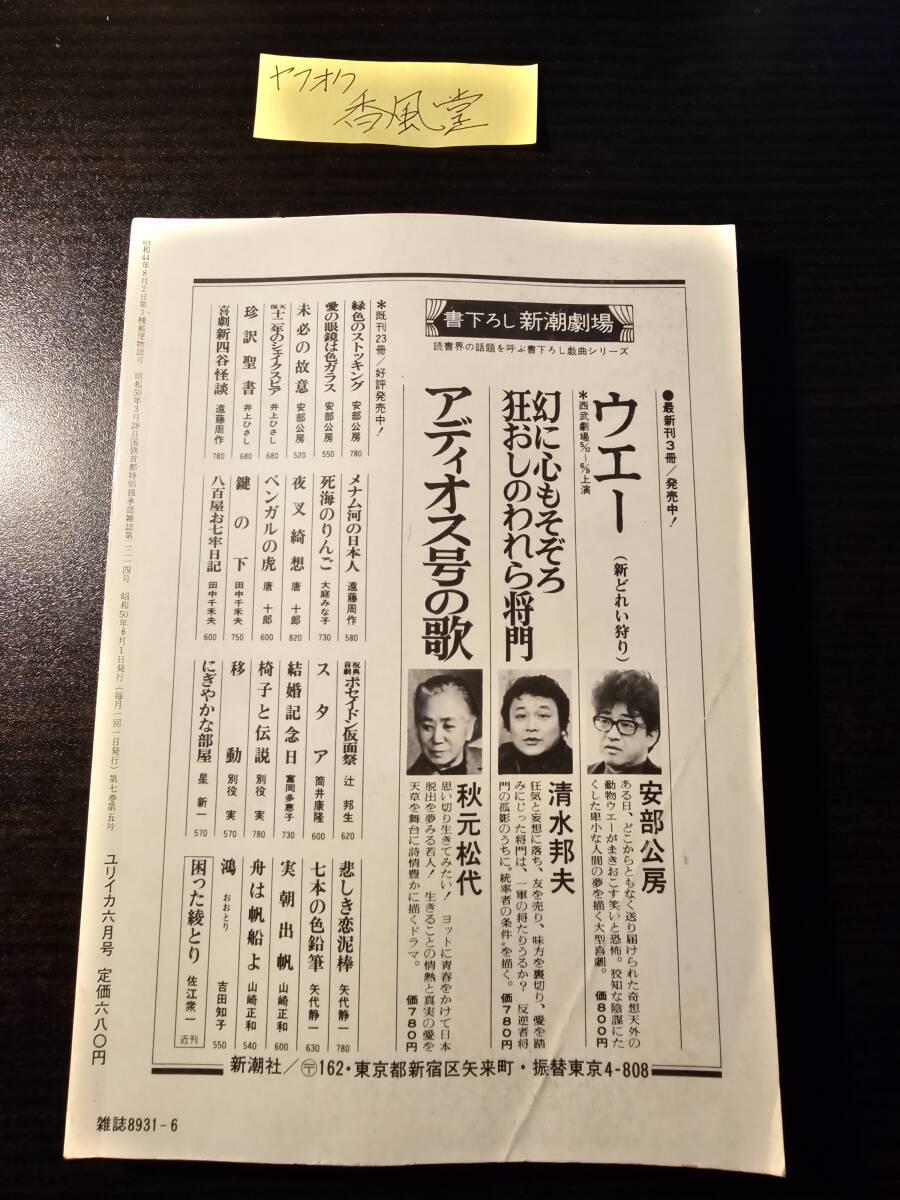 ヤフオク
香風堂
書下ろし 新潮劇場
読書界の話題を呼ぶ書下ろし戯曲シリーズ
●最新刊3冊/発売中!
ウエー (新どれい狩り)
*西武劇場5/12〜6/9上演
安部公房
ある日、どこからともなく送り届けられた奇想天外の
動物ウエーがまきおこす笑いと恐怖。狡知な陰謀にた
くした卑小な人間の夢を描く大型喜劇。 価800円
幻に心もそぞろ
狂おしのわれら将門
清水邦夫
狂気と妄想に落ち、友を売り、味方を裏切り、愛を踏
みにじった将門は、一軍の将たりうるか? 反逆者将
門の孤影のうちに“統率者の条件”を描く。 価780円
アディオス号の歌
秋元松代
思い切り生きてみたい! ヨットに青春をかけて日本
脱出を夢みる若人! 生きることの情熱と真実の愛を
天草を舞台に詩情豊かに描くドラマ。 価780円
*既刊23冊/好評発売中!
緑色のストッキング 安部公房 780
愛の眼鏡は色ガラス 安部公房 550
未必の故意 安部公房 520
天保十二年のシェイクスピア 井上ひさし 680
珍訳聖書 井上ひさし 680
喜劇新四谷怪談 遠藤周作 780
メナム河の日本人 遠藤周作 580
死海のりんご 大庭みな子 730
夜叉綺想 唐十郎 820
ベンガルの虎 唐十郎 600
鍵の下 田中千禾夫 750
八百屋お七牢日記 田中千禾夫 600
祝典喜劇ポセイドン仮面祭 辻邦生 620
スタア 筒井康隆 600
結婚記念日 富岡多恵子 730
椅子と伝説 別役実 780
移動 別役実 570
にぎやかな部屋 星新一 570
悲しき恋泥棒 矢代静一 780
七本の色鉛筆 矢代静一 630
実朝出帆 山崎正和 600
舟は帆船よ 山崎正和 540
鴻 おおとり 吉田知子 550
困った綾とり 佐江衆一 近刊
新潮社/〒162・東京都新宿区矢来町・振替東京4-808
昭和44年8月2日第3種郵便物認可 昭和50年3月28日国鉄首都特別扱承認雑誌第三二一四号 昭和50年6月1日発行(毎月一回一日発行)第七巻第五号
ユリイカ六月号 定価六八〇円
雑誌8931-6